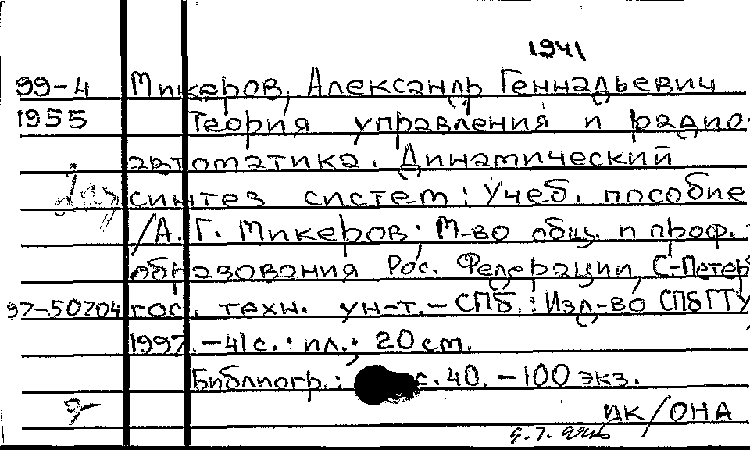 1941
99-4 Микеров, Александр Геннадьевич
1955 Теория управления и радио-
автоматика. Динамический
синтез систем: Учеб. пособие
/А. Г. Микеров; М-во общ. и проф.
образования Рос. Федерации, С-Петер
97-50204 гос. техн. ун-т. - СПб.: Изд-во СПбГТУ,
1997. - 41 с.: ил.; 20 см.
Библиогр.: с. 40. - 100 экз.
ДК/ОНА